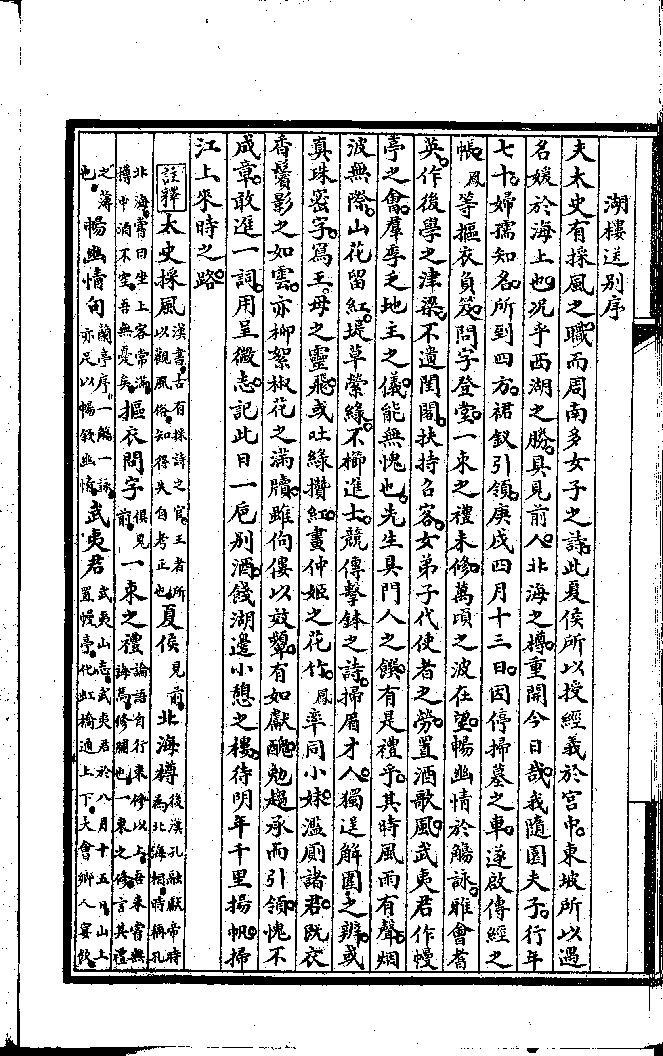 湖樓送別序
夫太史有採風之職而周南多女子之詩此夏侯所以授經義於宮中東坡所以遇
名媛於海上也况乎西湖之勝具見前人北海之樽重開今日哉我隨園夫子行年
七十婦孺知名所到四方裙釵引領庚戌四月十三日因停掃墓之車遂啟傳經之
帳鳳等摳衣負笈問字登堂一束之禮未修萬頃之波在望暢幽情於觴詠雅會耆
英作後學之津梁不遺閨閣扶持召客女弟子代使者之勞置酒歌風武夷君作幔
亭之會羣季乏地主之儀能無愧也先生具門人之饌有是禮乎其時風雨有聲烟
波無際山花留紅堤草縈綠不櫛進士競傳擊鉢之詩掃眉才人獨逞解圍之辨或
真珠密字寫王母之靈飛或吐綠攢紅畫仲姬之花竹鳳率同小妹濫廁諸君既衣
香鬢影之如雲亦柳絮椒花之滿牘雖佝僂以效顰有如獻醜勉趨承而引領愧不
成章敢進一詞用呈微志記此日一卮别酒餞湖邊小憩之樓待明年千里揚帆掃
江上來時之路
註釋 太史採風漢書古有採詩之官王者所以觀風俗知得失自考正也夏侯見前北海樽後漢孔融獻帝時為北海相時稱孔
北海嘗曰坐上客常滿樽中酒不空吾無憂矣摳衣問字俱見前一束之禮論語自行束修以上吾未嘗無誨焉修脯也一束之修言其禮
之薄也暢幽情句蘭亭序一觴一詠亦足以暢敘幽情武夷君武夷山志武夷君於八月十五日山上置幔亭化虹橋通上下大會鄉人宴飲